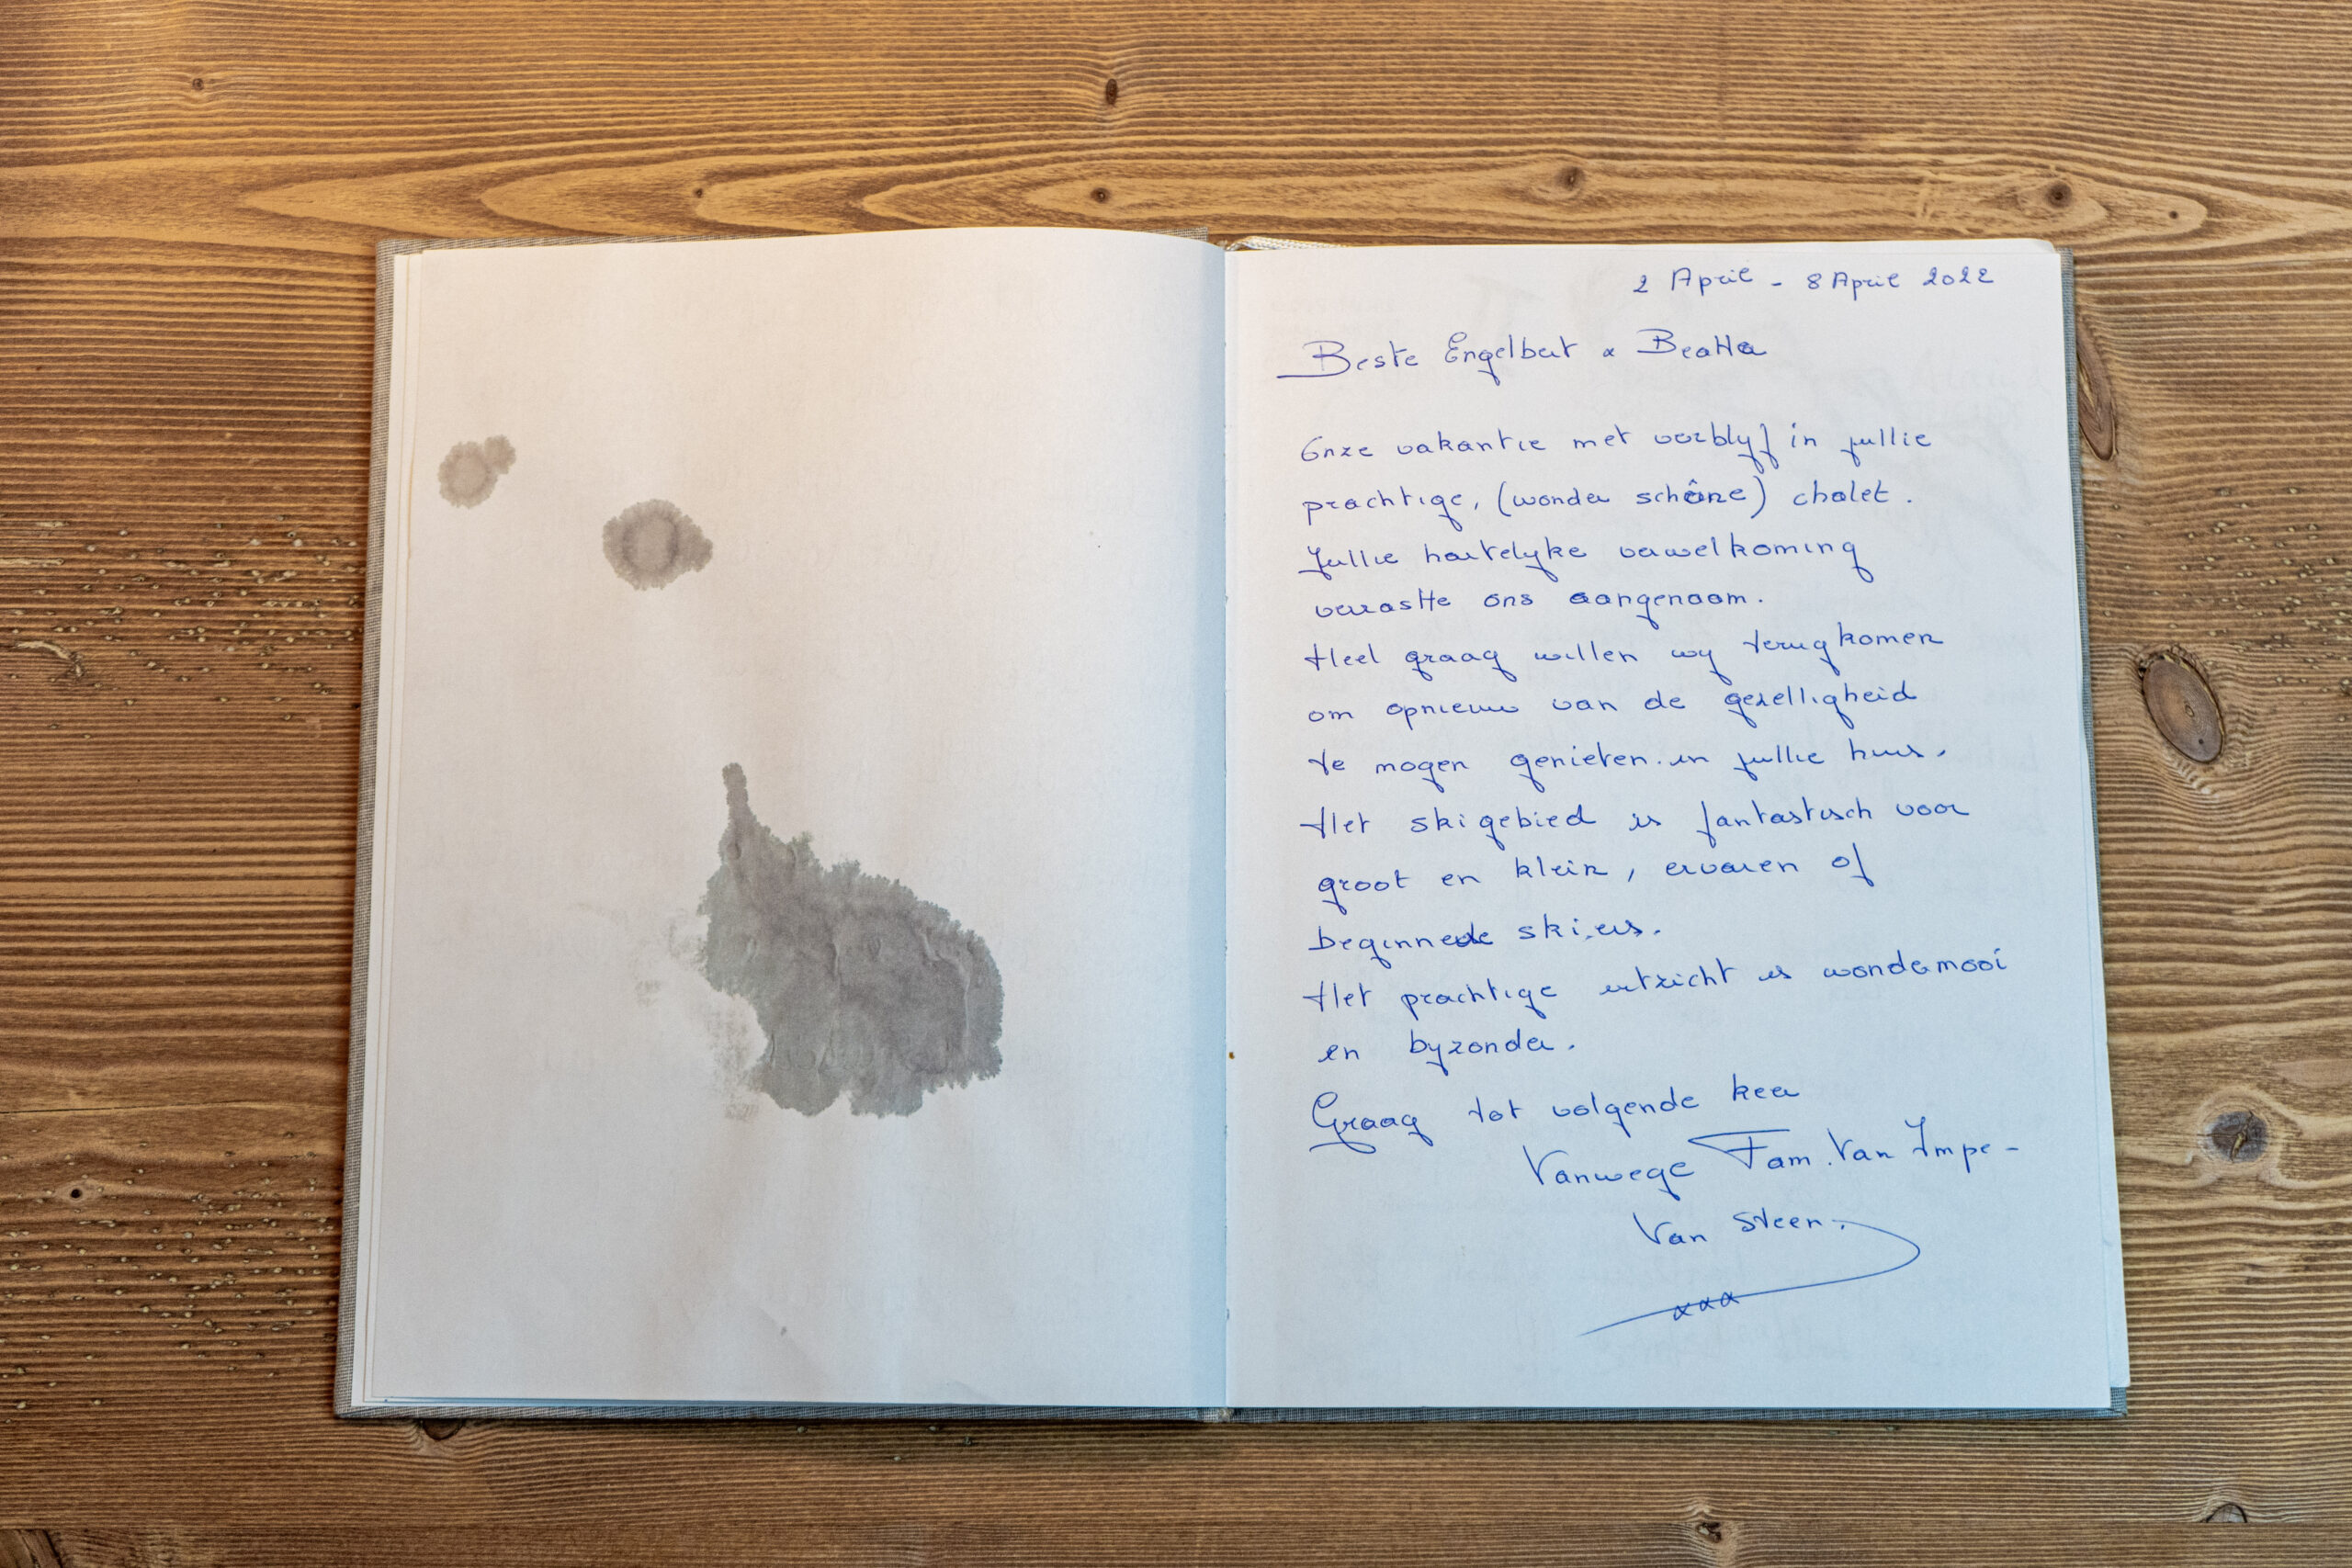 2 April - 8 April 2022
Beste Engelbert & Beatta
Onze vakantie met verblyf in jullie
prachtige, (wonder schöne) chalet.
Jullie hartelyke verwelkoming
verraste ons aangenaam.
Heel graag willen wy terugkomen
om opnieuw van de gezelligheid
te mogen genieten in jullie huis.
Het skigebied is fantastisch voor
groot en klein, ervaren of
beginnende skiërs.
Het prachtige uitzicht is wondermooi
en byzonder.
Graag tot volgende keer
Vanwege Fam. Van Impe -
Van Steen.
xxx